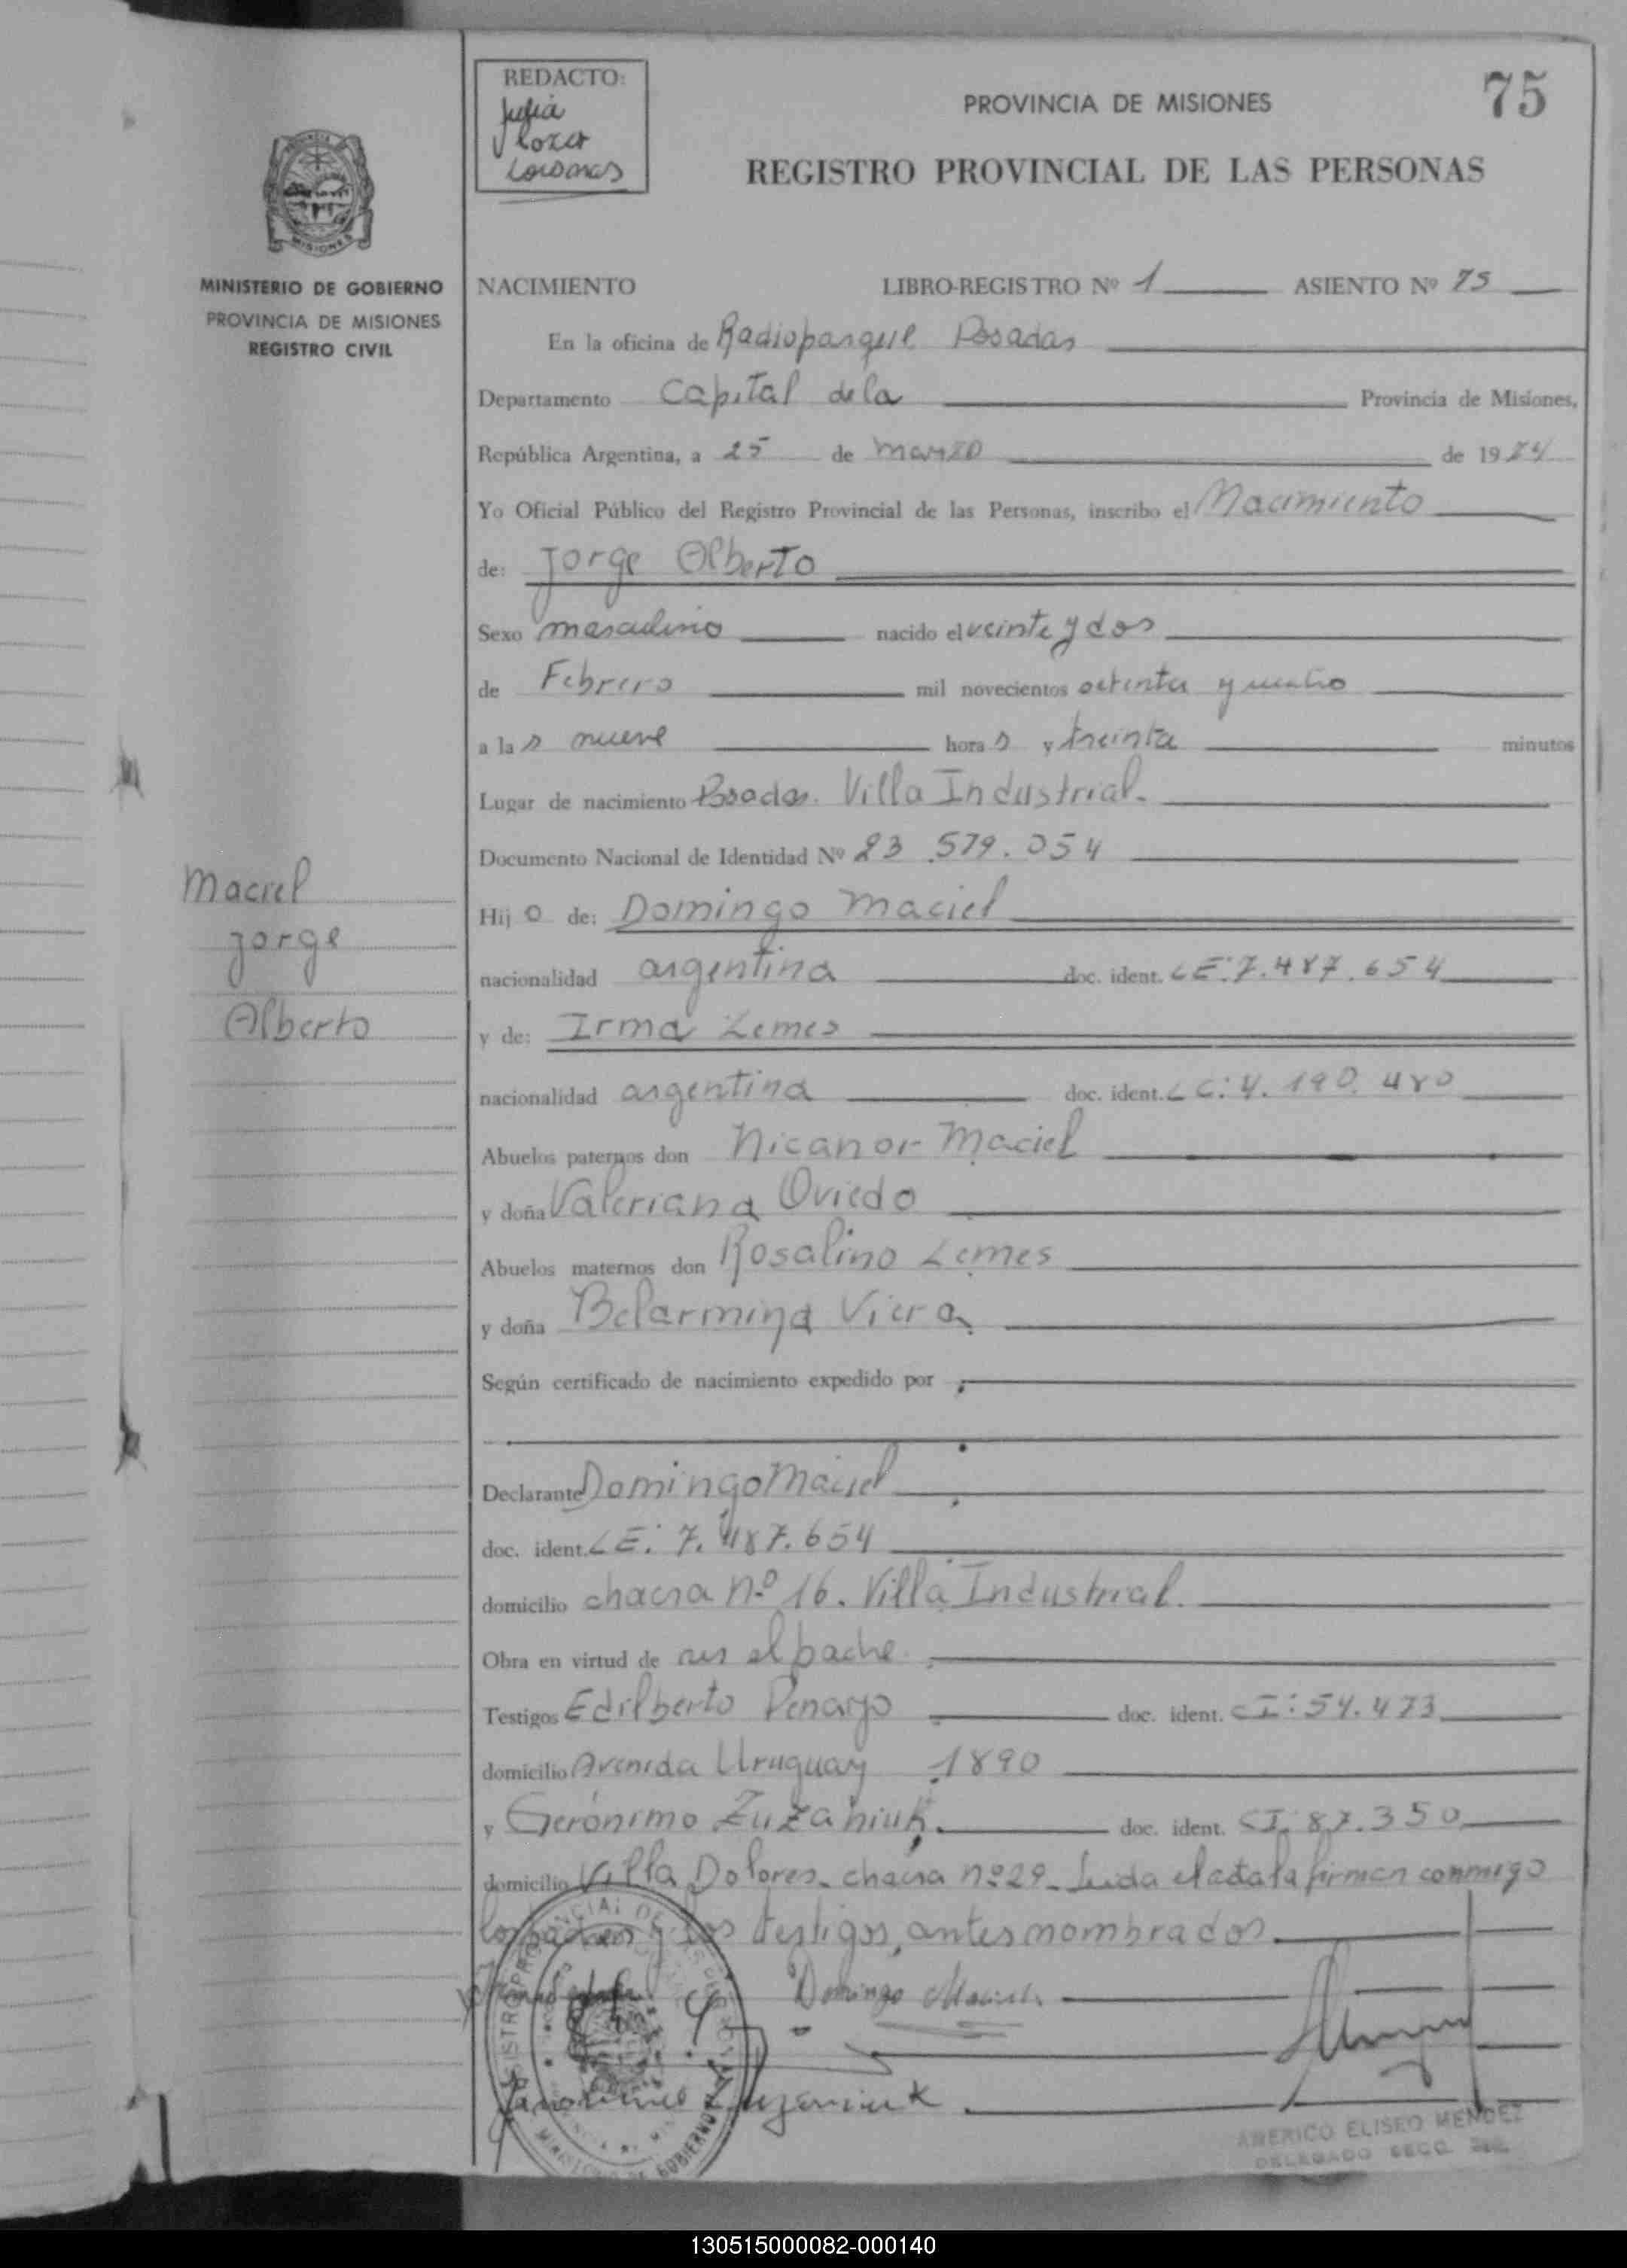 REDACTO:
PROVINCIA DE MISIONES
75
REGISTRO PROVINCIAL DE LAS PERSONAS
MISIONES
MINISTERIO DE GOBIERNO
PROVINCIA DE MISIONES
REGISTRO CIVIL
NACIMIENTO LIBRO-REGISTRO Nº 1 ASIENTO Nº 75
En la oficina de Radioparque Posadas
Departamento Capital de la Provincia de Misiones,
República Argentina, a 25 de marzo de 1974
Yo Oficial Público del Registro Provincial de las Personas, inscribo el Nacimiento
de: Jorge Alberto
Sexo masculino nacido el veinte y dos
de Febrero mil novecientos setenta y cuatro
a las nueve horas y treinta minutos
Lugar de nacimiento Posadas. Villa Industrial.
Documento Nacional de Identidad Nº 23.579.054
Maciel
Jorge
Alberto
Hijo de: Domingo Maciel
nacionalidad argentina doc. ident. LE: 7.487.654
y de: Irma Lemes
nacionalidad argentina doc. ident. LC: 4.190.480
Abuelos paternos don Nicanor Maciel
y doña Valeriana Oviedo
Abuelos maternos don Rosalino Lemes
y doña Belarmina Viera
Según certificado de nacimiento expedido por
Declarante Domingo Maciel
doc. ident. LE: 7.487.654
domicilio chacra nº 16. Villa Industrial.
Obra en virtud de ser el padre
Testigos Edilberto Penayo doc. ident. CI: 54.473
domicilio Avenida Uruguay 1890
y Gerónimo Zuzaniuk doc. ident. CI: 87.350
domicilio Villa Dolores. chacra nº 29. Leida el acta la firman conmigo
los padres y los testigos, antes nombrados.
Domingo Maciel
AMERICO ELISEO MENDEZ
DELEGADO SECC.
130515000082-000140